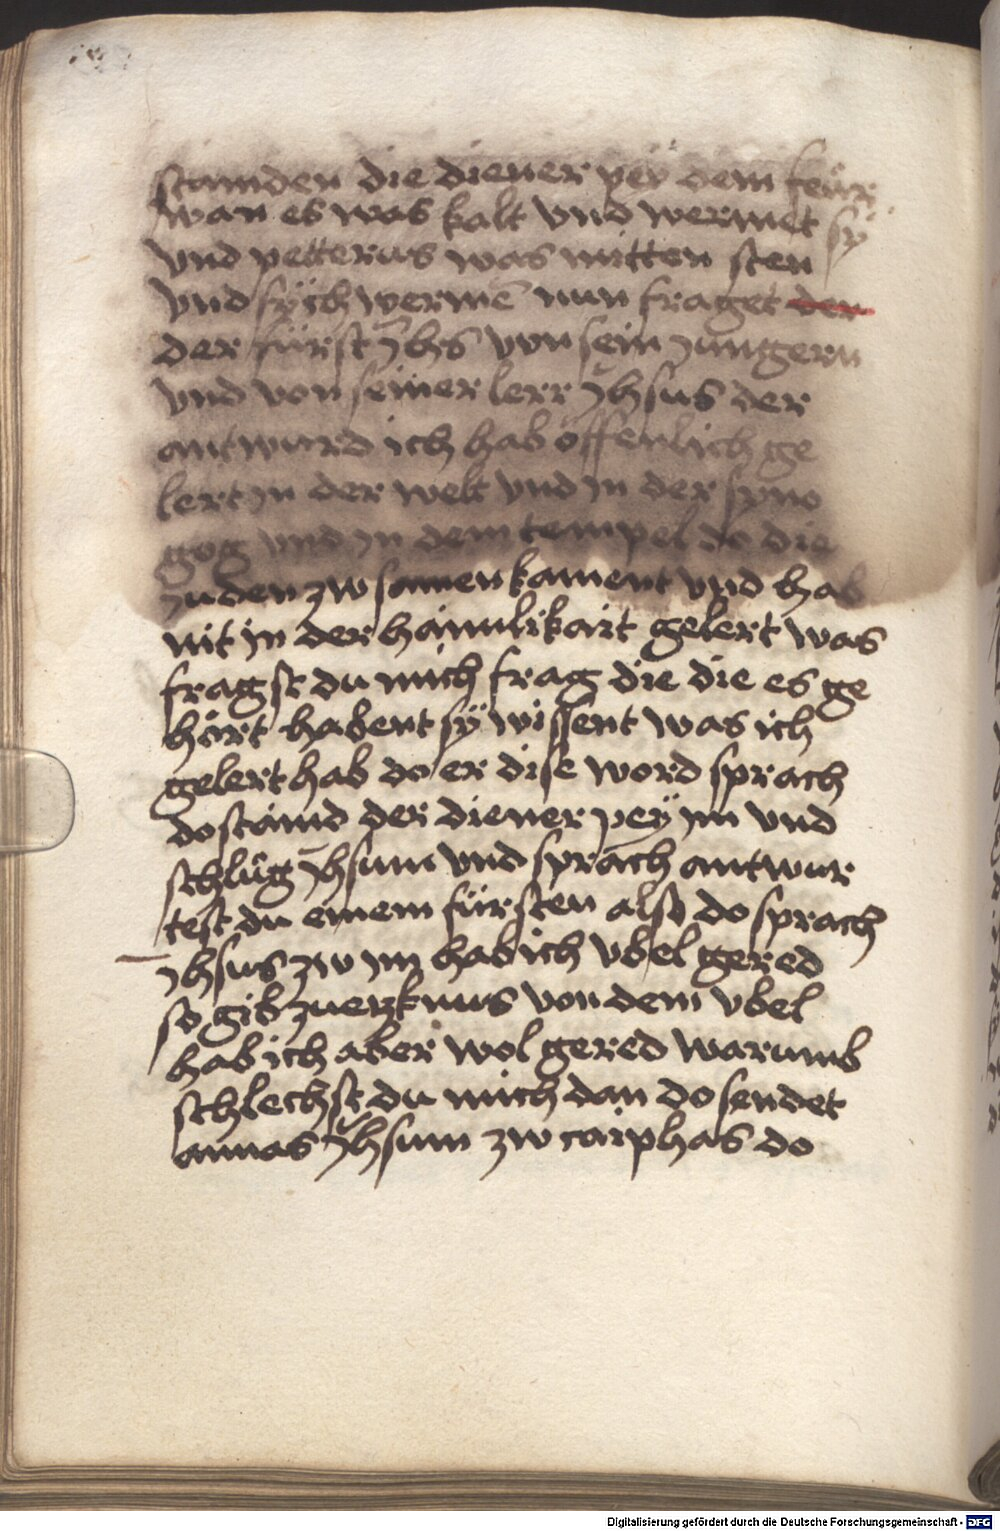 stainden die diener peÿ dem feür
wan es was kalt vnd wermet sÿ
vnd petterus was mitten sten
vnd sÿch wermē nun fraget der
der fürst Jhs von sein jungern
vnd von seiner lerr Jhsus der
antwurd ich hab öffenlich ge
lert jn der welt vnd jn der syno
gog vnd jn dem tempel do die
juden zw samen kament vnd hab
nit jn der haimlikait gelert was
fragst du mich frag die die es ge
hört habent sÿ wissent was ich
gelert hab do er dise word sprach
do staind der diener peÿ jm vnd
schlůg Jhsum vnd sprach antwur
test du einem fürsten also do sprach
Jhsus zw jm hab ich vbel gered
so gib zuerknus von dem vbel
hab ich aber wol gered warumb
schlechst du mich dan do sendet
annas Jhsum zw caiphas do
Digitalisierung gefördert durch die Deutsche Forschungsgemeinschaft - DFG